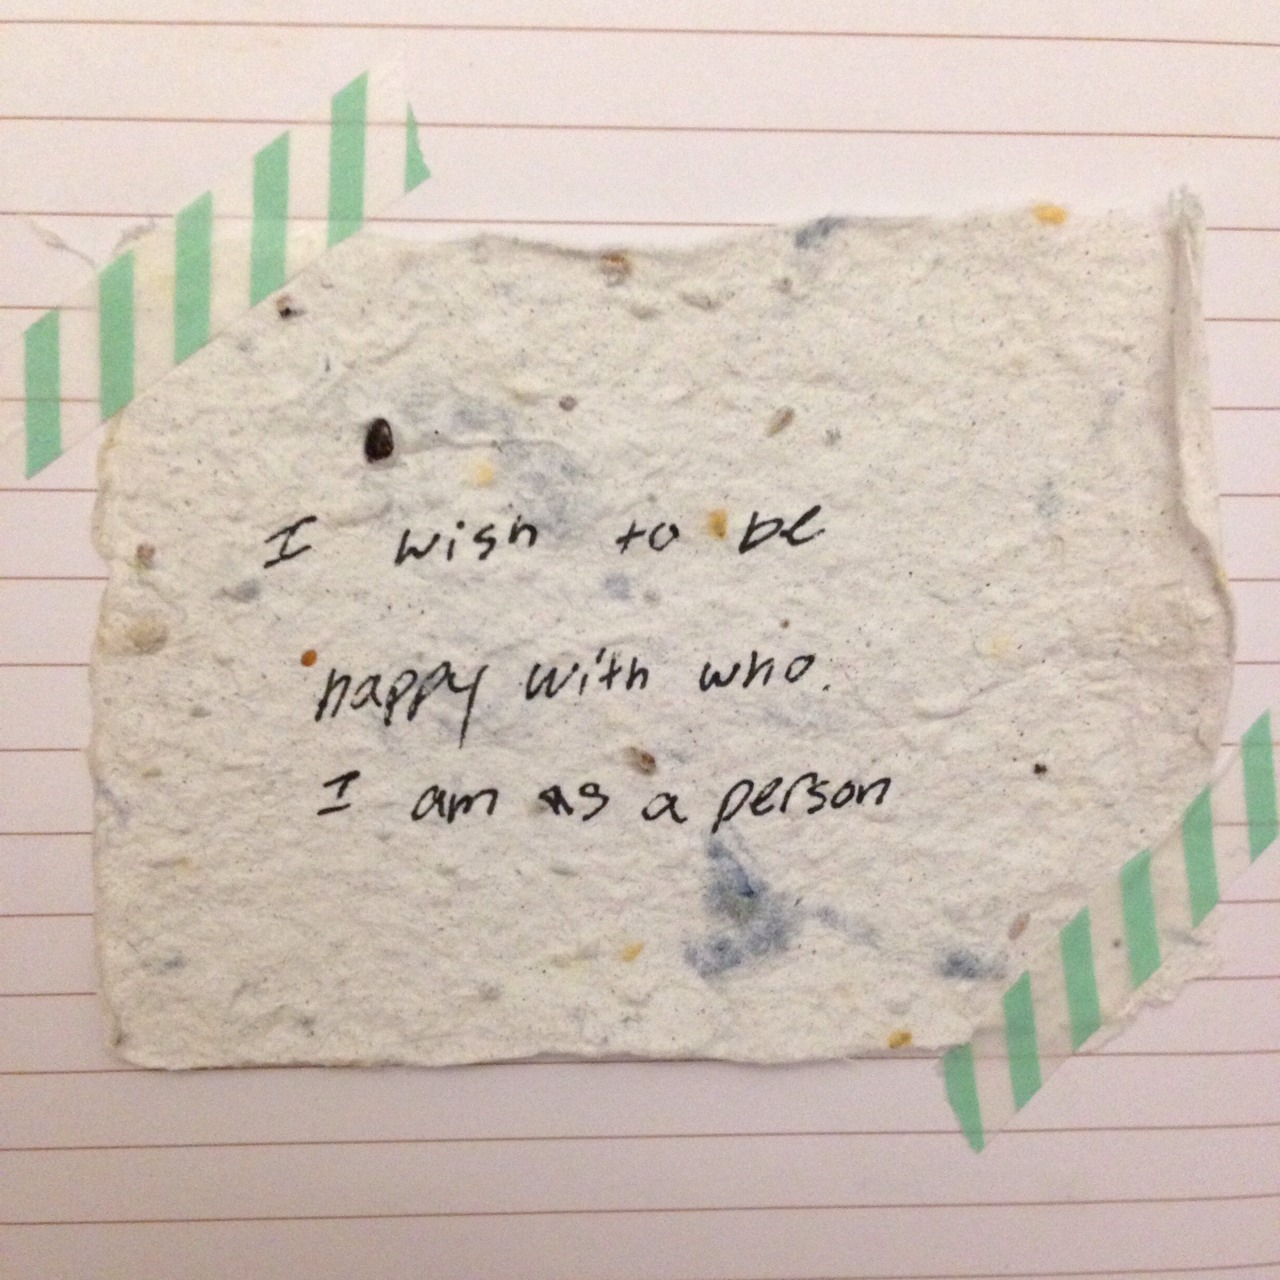 I wish to be
happy with who.
I am as a person